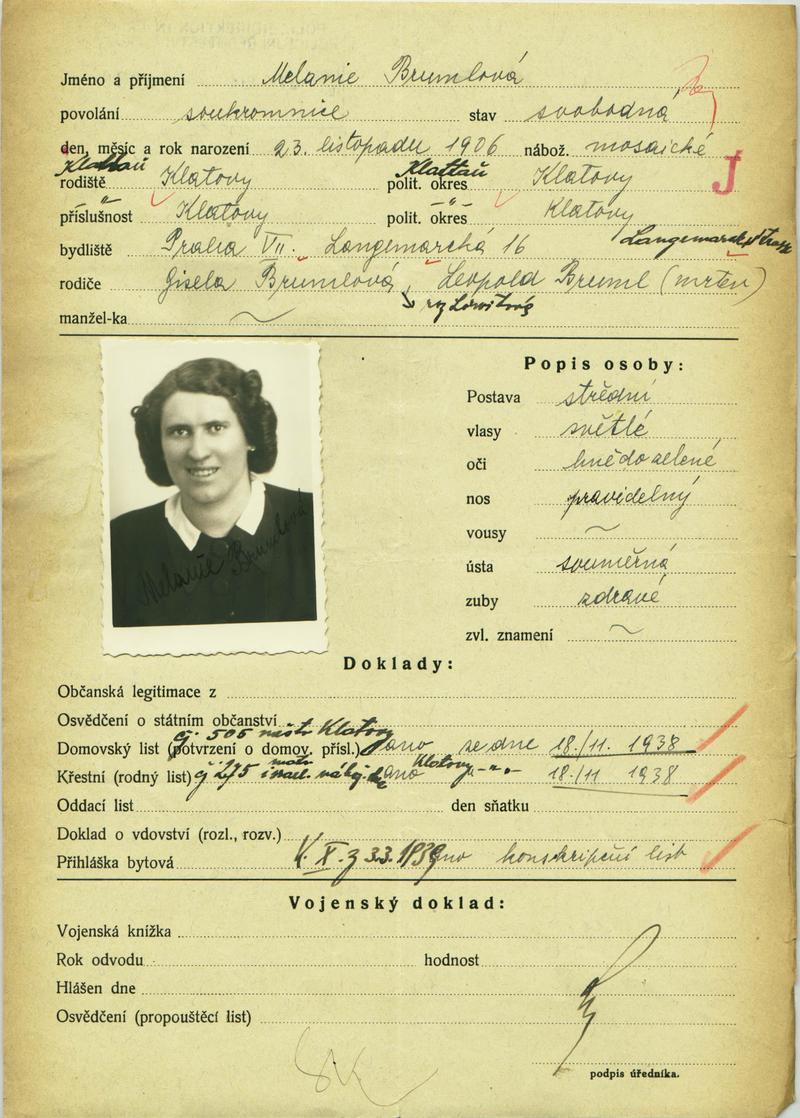 Jméno a příjmení Melanie Brumlová
povolání soukromnice stav svobodná
den, měsíc a rok narození 23. listopadu 1906 nábož. mosaické
Klattau Klattau J
rodiště Klatovy polit. okres Klatovy
příslušnost Klatovy polit. okres Klatovy
bydliště Praha VII. Langemarcká 16
rodiče Gisela Brumlová, Leopold Bruml (mrtev)
manžel-ka
Popis osoby:
Postava střední
vlasy světlé
oči hnědozelené
nos pravidelný
vousy
ústa souměrná
zuby zdravé
zvl. znamení
Melanie Brumlová
Doklady:
Občanská legitimace z
Osvědčení o státním občanství
č. 505 Klatovy
Domovský list (potvrzení o domov. přísl.) ano ze dne 18./11. 1938
Klatovy
Křestní (rodný list) č 275 ano 18./11 1938
Oddací list den sňatku
Doklad o vdovství (rozl., rozv.)
Přihláška bytová ano konskripční list
Vojenský doklad:
Vojenská knížka
Rok odvodu hodnost
Hlášen dne
Osvědčení (propouštěcí list)
podpis úředníka.